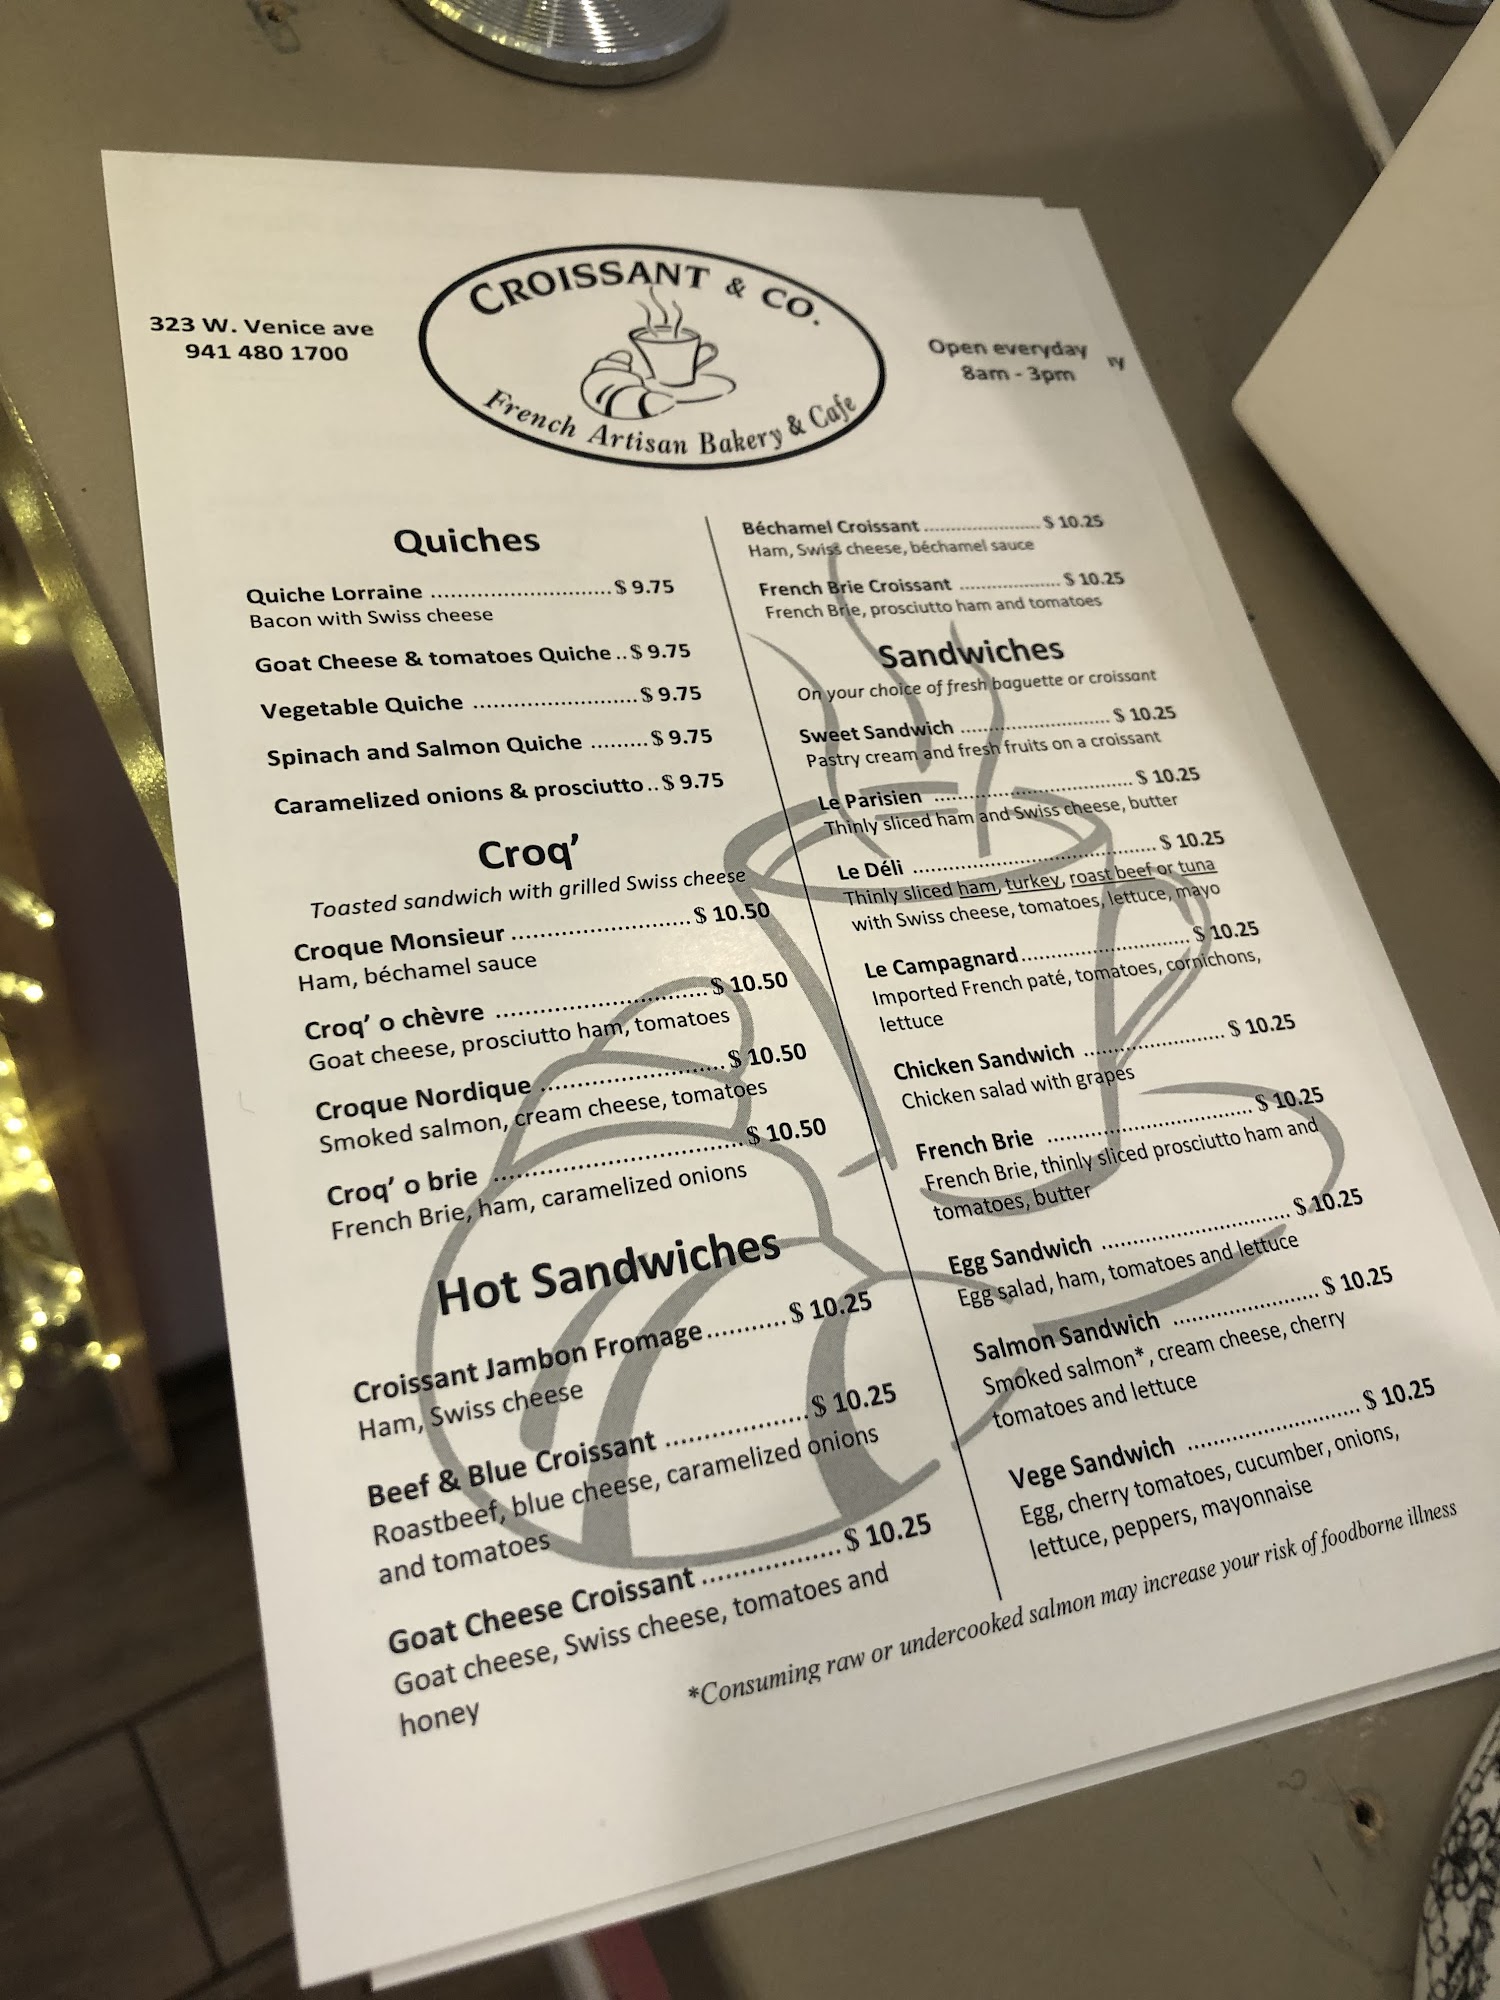 323 W. Venice ave
941 480 1700
CROISSANT & CO.
French Artisan Bakery & Cafe
Open everyday
8am - 3pm
Quiches
Quiche Lorraine ........................... $ 9.75
Bacon with Swiss cheese
Goat Cheese & tomatoes Quiche .. $ 9.75
Vegetable Quiche ........................ $ 9.75
Spinach and Salmon Quiche ......... $ 9.75
Caramelized onions & prosciutto .. $ 9.75
Croq’
Toasted sandwich with grilled Swiss cheese
Croque Monsieur ........................... $ 10.50
Ham, béchamel sauce
Croq’ o chèvre ................................ $ 10.50
Goat cheese, prosciutto ham, tomatoes
Croque Nordique ........................... $ 10.50
Smoked salmon, cream cheese, tomatoes
Croq’ o brie ..................................... $ 10.50
French Brie, ham, caramelized onions
Hot Sandwiches
Croissant Jambon Fromage ........... $ 10.25
Ham, Swiss cheese
Beef & Blue Croissant .................... $ 10.25
Roastbeef, blue cheese, caramelized onions
and tomatoes
Goat Cheese Croissant ................... $ 10.25
Goat cheese, Swiss cheese, tomatoes and
honey
Béchamel Croissant ....................... $ 10.25
Ham, Swiss cheese, béchamel sauce
French Brie Croissant .................... $ 10.25
French Brie, prosciutto ham and tomatoes
Sandwiches
On your choice of fresh baguette or croissant
Sweet Sandwich ............................ $ 10.25
Pastry cream and fresh fruits on a croissant
Le Parisien .................................... $ 10.25
Thinly sliced ham and Swiss cheese, butter
Le Déli ............................................ $ 10.25
Thinly sliced ham, turkey, roast beef or tuna
with Swiss cheese, tomatoes, lettuce, mayo
Le Campagnard ............................. $ 10.25
Imported French paté, tomatoes, cornichons,
lettuce
Chicken Sandwich ......................... $ 10.25
Chicken salad with grapes
French Brie .................................... $ 10.25
French Brie, thinly sliced prosciutto ham and
tomatoes, butter
Egg Sandwich ................................ $ 10.25
Egg salad, ham, tomatoes and lettuce
Salmon Sandwich .......................... $ 10.25
Smoked salmon* , cream cheese, cherry
tomatoes and lettuce
Vege Sandwich .............................. $ 10.25
Egg, cherry tomatoes, cucumber, onions,
lettuce, peppers, mayonnaise
*Consuming raw or undercooked salmon may increase your risk of foodborne illness